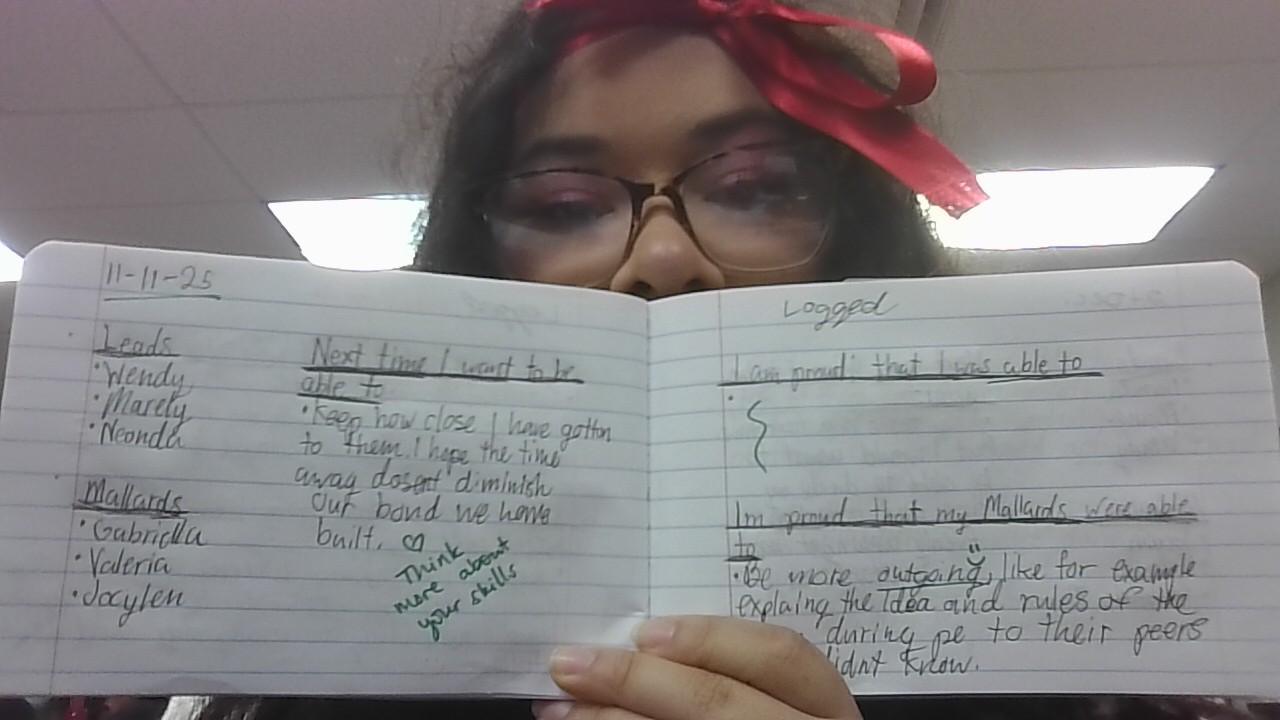 11-11-25
Leads
• Wendy
• Marely
• Neonda
Mallards
• Gabriella
• Valeria
• Jocylen
Next time I want to be
able to
• Keep how close I have gotton
to them. I hope the time
away dosent diminish
our bond we have
built. ♡
Think
more about
your skills
Logged
I am proud that I was able to
Im proud that my Mallards were able
to
• Be more outgoing, like for example
explaing the idea and rules of the
during pe to their peers
didnt know.